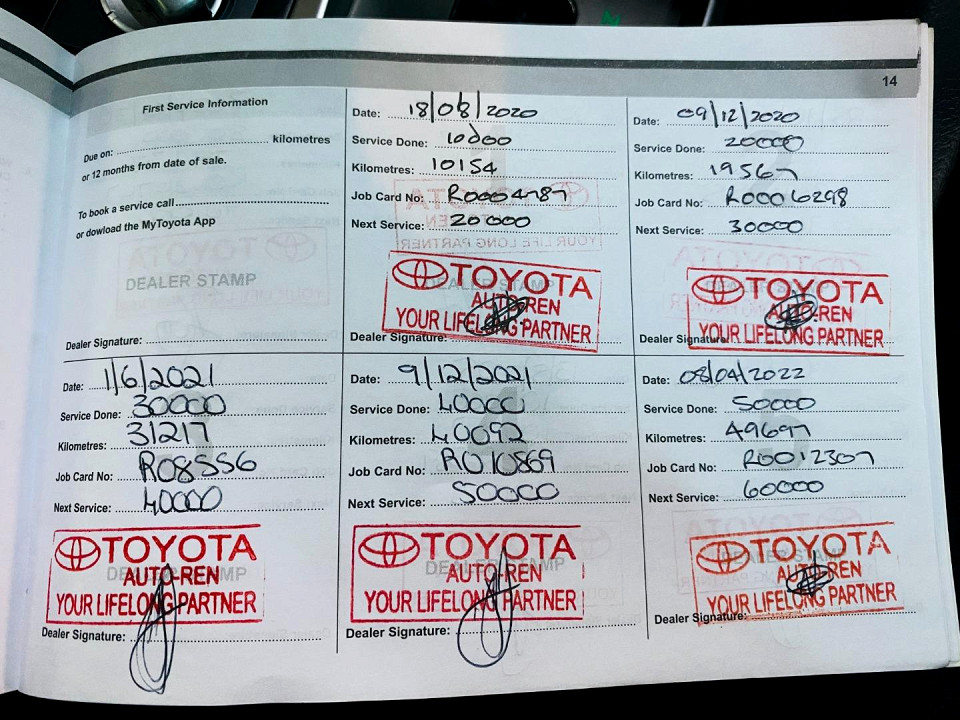 14
First Service Information
Due on: kilometres
or 12 months from date of sale.
To book a service call
or dowload the MyToyota App
DEALER STAMP
Dealer Signature:
Date: 18/08/2020
Service Done: 10000
Kilometres: 10154
Job Card No: R0004787
Next Service: 20000
TOYOTA
AUTO-REN
YOUR LIFELONG PARTNER
Dealer Signature:
Date: 09/12/2020
Service Done: 20000
Kilometres: 19567
Job Card No: R0006298
Next Service: 30000
TOYOTA
AUTO-REN
YOUR LIFELONG PARTNER
Dealer Signature:
Date: 1/6/2021
Service Done: 30000
Kilometres: 31217
Job Card No: R08556
Next Service: 40000
DEALER STAMP
TOYOTA
AUTO-REN
YOUR LIFELONG PARTNER
Dealer Signature:
Date: 9/12/2021
Service Done: 40000
Kilometres: 40092
Job Card No: R010869
Next Service: 50000
DEALER STAMP
TOYOTA
AUTO-REN
YOUR LIFELONG PARTNER
Dealer Signature:
Date: 08/04/2022
Service Done: 50000
Kilometres: 49697
Job Card No: R0012307
Next Service: 60000
DEALER STAMP
TOYOTA
AUTO-REN
YOUR LIFELONG PARTNER
Dealer Signature: